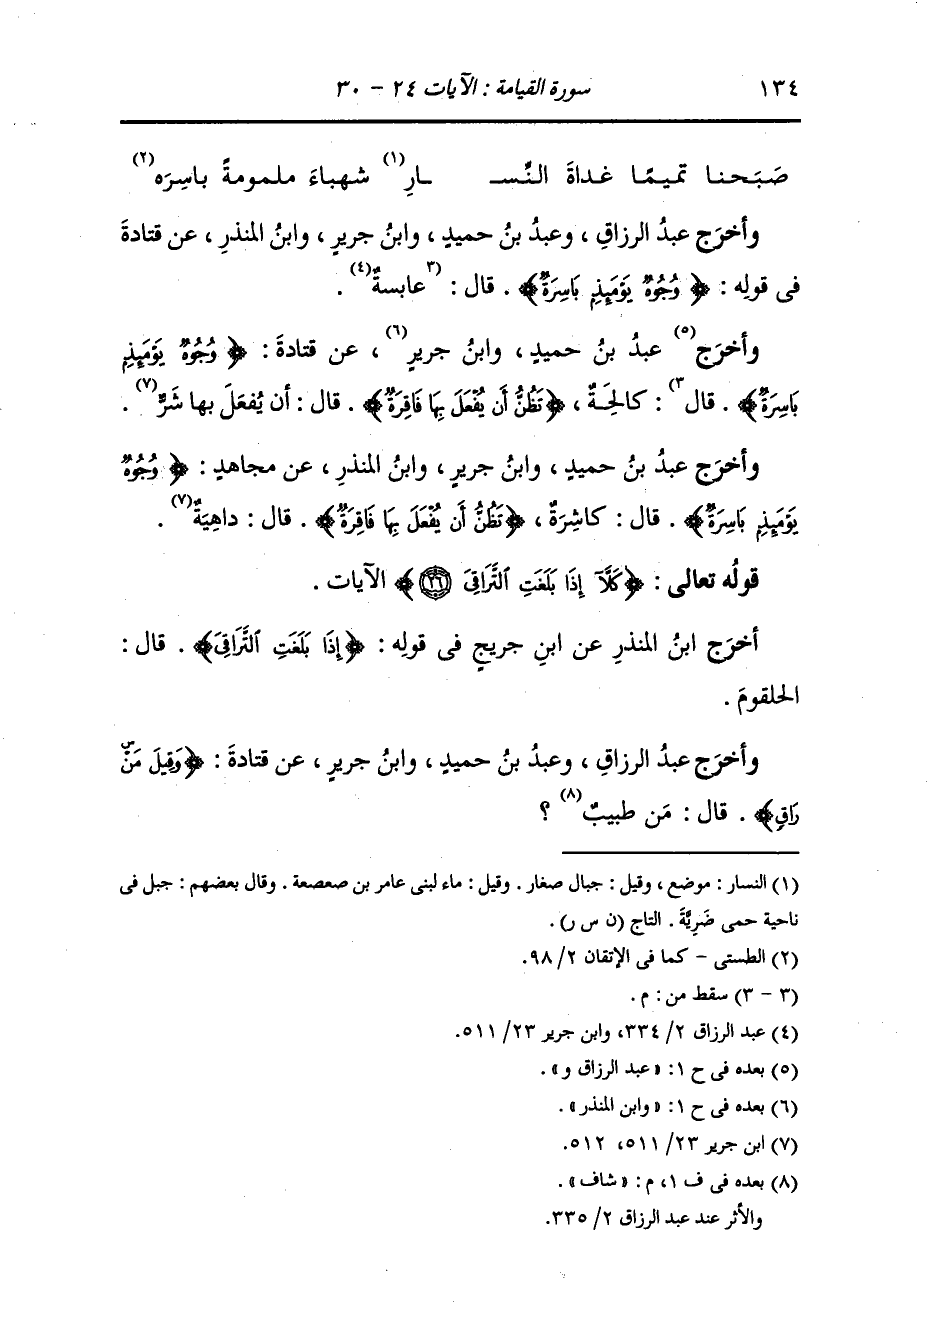 ١٣٤ سورة القيامة : الآيات ٢٤ - ٣٠
صَبَحنا تميمًا غداةَ النِّســـارِ(١) شهباءَ ملمومةً باسِرَه(٢)
وأخرَج عبدُ الرزاقِ ، وعبدُ بنُ حميدٍ ، وابنُ جريرٍ ، وابنُ المنذرِ ، عن قتادةَ
فى قولِه : ﴿ وُجُوهٌ يَوْمَئِذٍ بَاسِرَةٌ﴾ . قال : (٣عابسةٌ(٤) .
وأخرَج(٥) عبدُ بنُ حميدٍ ، وابنُ جريرٍ(٦) ، عن قتادةَ : ﴿ وُجُوهٌ يَوْمَئِذٍ
بَاسِرَةٌ﴾ . قال٣) : كالحِةٌ ، ﴿تَظُنُّ أَن يُفْعَلَ بِهَا فَاقِرَةٌ﴾ . قال : أن يُفعَلَ بها شَرٌّ(٧) .
وأخرَج عبدُ بنُ حميدٍ ، وابنُ جريرٍ ، وابنُ المنذرِ ، عن مجاهدٍ : ﴿ وُجُوهٌ
يَوْمَئِذٍ بَاسِرَةٌ﴾ . قال : كاشِرَةٌ ، ﴿تَظُنُّ أَن يُفْعَلَ بِهَا فَاقِرَةٌ﴾ . قال : داهِيَةٌ(٧) .
قولُه تعالى : ﴿كَلَّآ إِذَا بَلَغَتِ ٱلتَّرَاقِىَ ٢٦﴾ الآيات .
أخرَج ابنُ المنذرِ عن ابنِ جريجٍ فى قولِه : ﴿إِذَا بَلَغَتِ ٱلتَّرَاقِىَ﴾ . قال :
الحلقومَ .
وأخرَج عبدُ الرزاقِ ، وعبدُ بنُ حميدٍ ، وابنُ جريرٍ ، عن قتادةَ : ﴿وَقِيلَ مَنْۜ
رَاقٍ﴾ . قال : مَن طبيبٌ(٨) ؟
(١) النسار : موضع ، وقيل : جبال صغار . وقيل : ماء لبنى عامر بن صعصعة . وقال بعضهم : جبل فى
ناحية حمى ضَرِيَّةَ . التاج (ن س ر) .
(٢) الطستى - كما فى الإتقان ٢/ ٩٨.
(٣ - ٣) سقط من : م .
(٤) عبد الرزاق ٢/ ٣٣٤، وابن جرير ٢٣/ ٥١١.
(٥) بعده فى ح ١: « عبد الرزاق و» .
(٦) بعده فى ح ١: « وابن المنذر» .
(٧) ابن جرير ٢٣/ ٥١١، ٥١٢.
(٨) بعده فى ف ١، م : « شاف» .
والأثر عند عبد الرزاق ٢/ ٣٣٥.